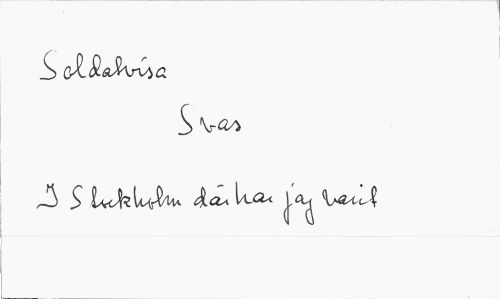 Soldatvisa
Svas
I Stockholm där har jag varit